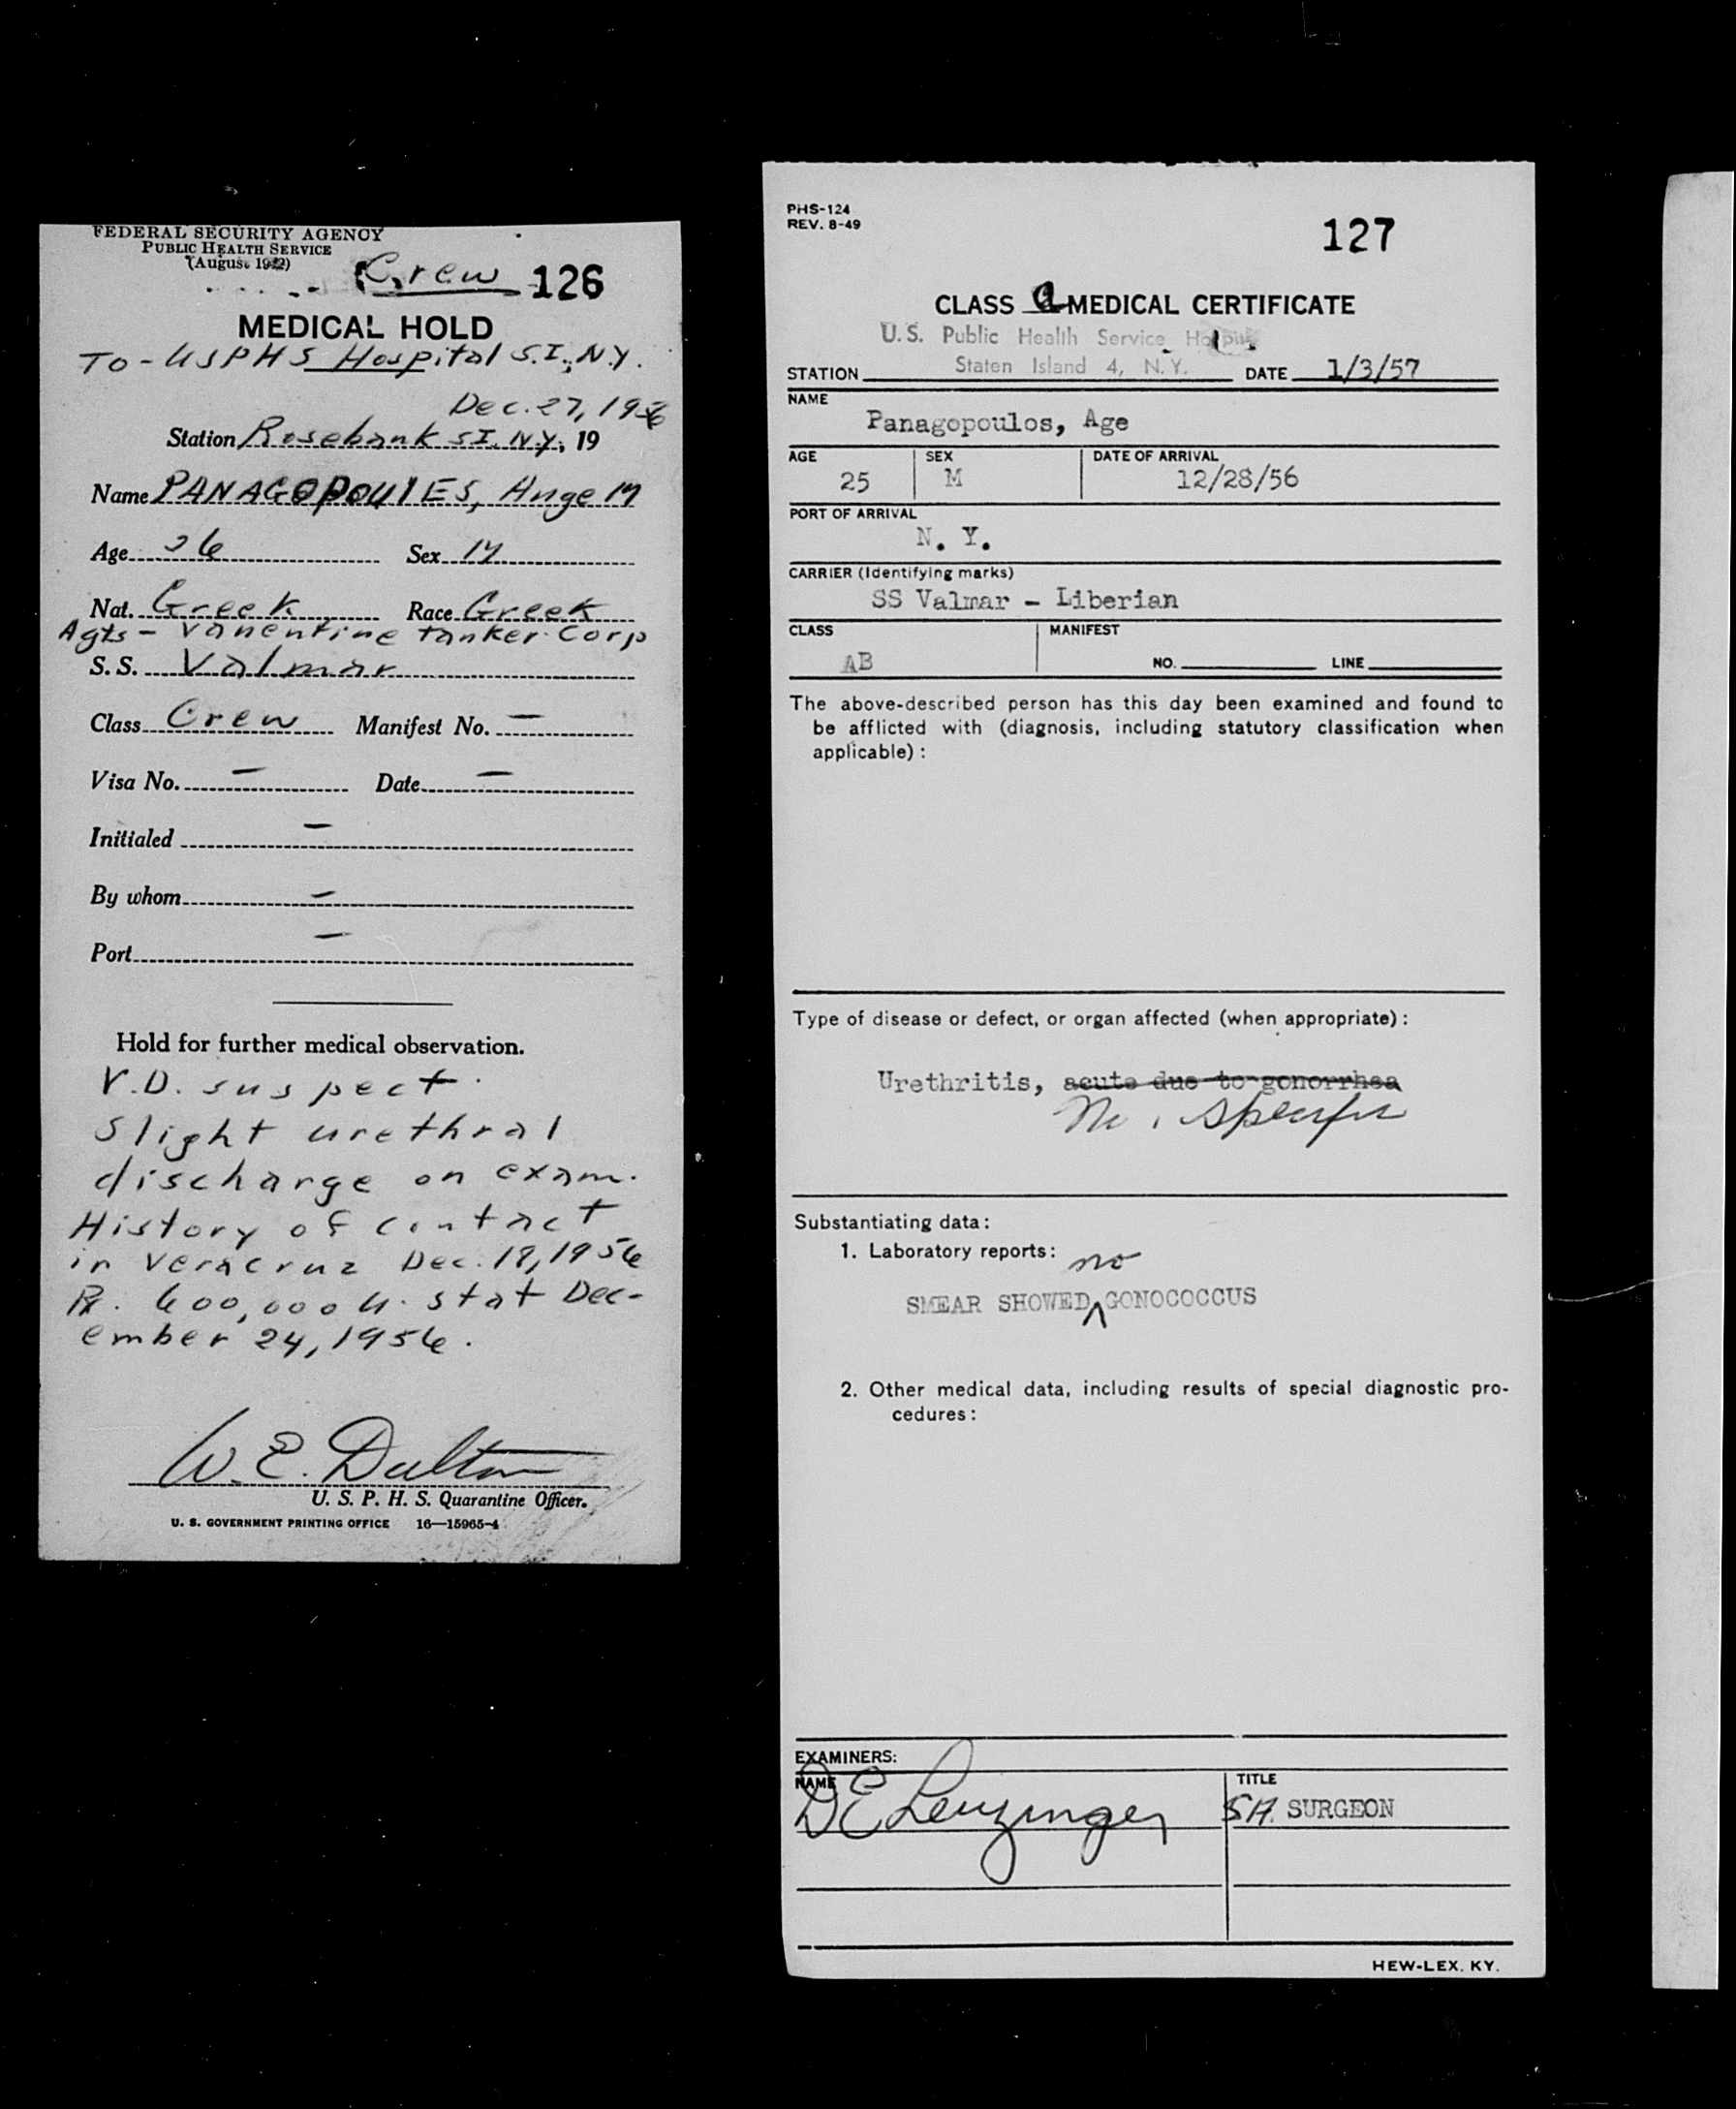 FEDERAL SECURITY AGENCY
PUBLIC HEALTH SERVICE
(August 19)
Crew 126
MEDICAL HOLD
To - USPHS Hospital S.I., N.Y.
Dec. 27, 1956
Station Rosebank S.I. N.Y., 19
Name PANAGOPOULES, Ange
Age 26 Sex M
Nat. Greek Race Greek
Agts - Vanentine tanker Corp
S. S. Valmar
Class Crew Manifest No. —
Visa No. — Date —
Initialed —
By whom —
Port —
Hold for further medical observation.
V.D. suspect.
Slight urethral
discharge on exam.
History of contact
in Veracruz Dec. 18, 1956
Rx. 600,000 u. stat Dec-
ember 24, 1956.
W. E. Dalton
U. S. P. H. S. Quarantine Officer.
U. S. GOVERNMENT PRINTING OFFICE 16—15965-4
PHS-124
REV. 8-49
127
CLASS a MEDICAL CERTIFICATE
U.S. Public Health Service Hospital
STATION Staten Island 4, N.Y. DATE 1/3/57
NAME
Panagopoulos, Age
AGE SEX DATE OF ARRIVAL
25 M 12/28/56
PORT OF ARRIVAL
N. Y.
CARRIER (Identifying marks)
SS Valmar - Liberian
CLASS MANIFEST
AB NO. LINE
The above-described person has this day been examined and found to
be afflicted with (diagnosis, including statutory classification when
applicable) :
Type of disease or defect, or organ affected (when appropriate) :
Urethritis, acute due to gonorrhea
specific
Substantiating data :
1. Laboratory reports :
no
SMEAR SHOWED GONOCOCCUS
2. Other medical data, including results of special diagnostic pro-
cedures :
EXAMINERS:
NAME TITLE
D E Lenzinger SA. SURGEON
HEW-LEX. KY.